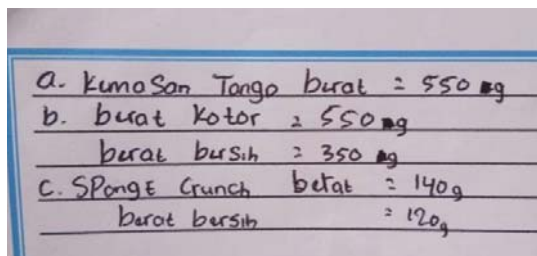 a. kumasan Tango burat = 550 g
b. burat kotor = 550 g
burat bursih = 350 g
C. SPongE Crunch berat = 140g
berat bersih = 120g